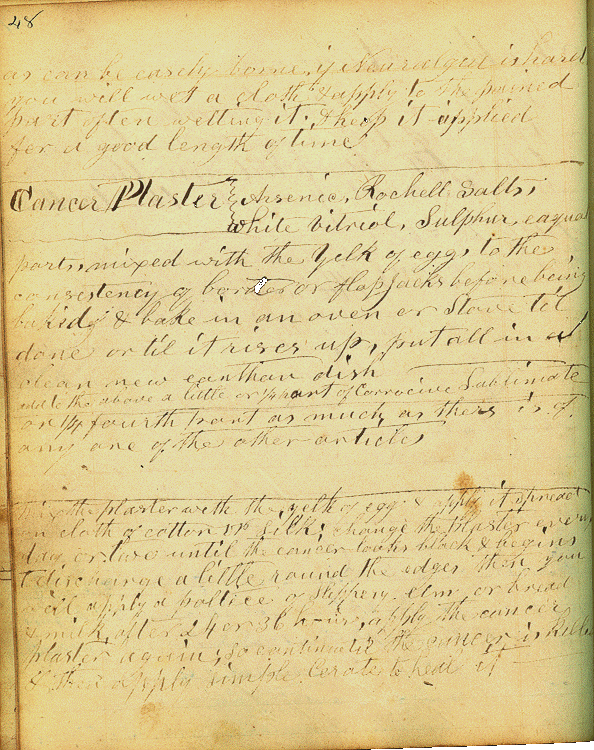 48
as can be easely borne, if Neuralgia is hard
you will wet a cloth & apply to the pained
part often wetting it. & keep it applied
for a good length of time
Cancer Plaster } Arsenic, Rochell Salts,
white Vitriol, Sulphur, eaqual
parts, mixed with the Yelk of egg, to the
consistency of or flapjacks before being
baked, & bake in an oven or Stove til
done or til it rises up, put all in a
clean new earthan dish
add to the above a little or part of Corrocive Sublimate
or 1/4 fourth part as much as thers is of
any one of the other articles
the plaster with the yelk of egg & apply it spread
on cloth of cotton or silk; change the plaster every
day or two until the cancer looks black & begins
to discharge a little round the edges then you
will apply a poltice of Slippery elm or bread
& milk, after 24 or 36 hours apply the cancer
plaster again, so continu til the cancer is killed
& then apply simple Cerate to heal it